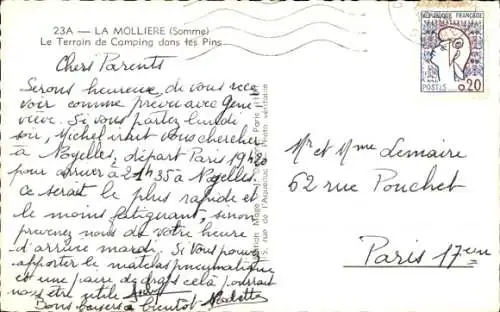 23A — LA MOLLIERE (Somme)
Le Terrain de Camping dans les Pins
REPUBLIQUE FRANCAISE
POSTES 0.20
Chers Parents
Serons heureux de vous rece
voir comme prevu avec Gene
vieve. Si vous partez lundi
soir, Michel irait vous chercher
à Noyelles, départ Paris 19h20
pour arriver à 21h35 à Noyelles
ce serait le plus rapide et
le moins fatiguant, sinon
prevenez nous de votre heure
d'arrivée mardi. Si vous pouvez
apporter le matelas pneumatique
et une paire de draps celà pourrait
nous être utile
Bons baisers à bientôt
Mr et Mme Lemaire
62 rue Pouchet
Paris 17eme